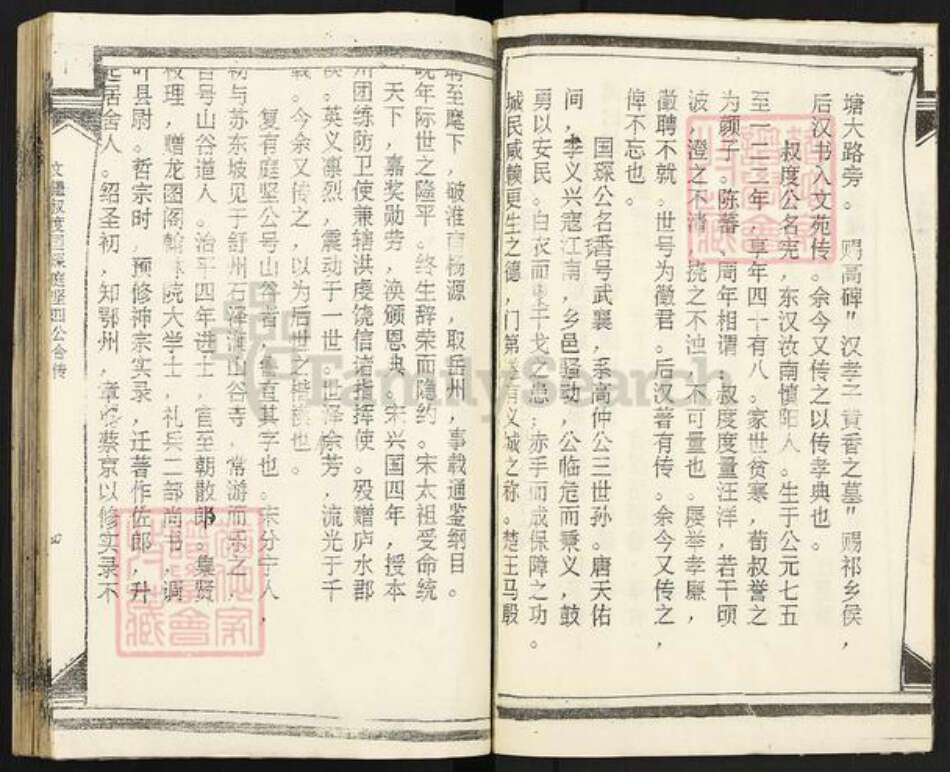 塘大路旁。赐高碑"汉孝子黄香之墓"赐祁乡侯，
后汉书入文苑传。余今又传之以传孝典也。
叔度公名宪，东汉汝南慎阳人。生于公元七五
至一二二年，享年四十有八。家世贫寒，荀叔誉之
为颜子。陈蕃、周年相谓，叔度度量汪洋，若千顷
波，澄之不清，挠之不浊，不可量也。屡举孝廉，
徵聘不就。世号为徵君。后汉著有传。余今又传之，
俾不忘也。
国琛公名番号武襄，系高仲公三世孙。唐天佑
间，季义兴寇江南，乡邑骚动，公临危而秉义，鼓
勇以安民。白衣而 干戈之患，赤手而成保障之功。
城民咸赖更生之德，门第 有义城之称。楚王马殷
聘至麾下，破淮南杨源，取岳州，事载通鉴纲目。
晚年际世之隆平。终生辞荣而隐约。宋太祖受命统
一天下，嘉奖勋劳，涣颁恩典，宋兴国四年，授本
州团练防卫使兼辖洪虔饶信诸指挥使。殁赠庐水郡
侯。英义凛烈，震动于一世。世泽余芳，流光于千
载。今余又传之，以为后世之楷模也。
复有庭坚公号山谷者，鲁直其字也。宋分宁人，
初与苏东坡见于舒州石泽 山谷寺，常游而乐之，
自号山谷道人。治平四年进士，官至朝散郎。集贤
校理，赠龙图阁翰林院大学士，礼兵二部尚书，调
叶县尉。哲宗时，预修神宗实录，迁著作佐郎，升
起居舍人。绍圣初，知鄂州，章惇蔡京以修实录不
文疆叔度国琛庭坚四公合传
四
FamilySearch